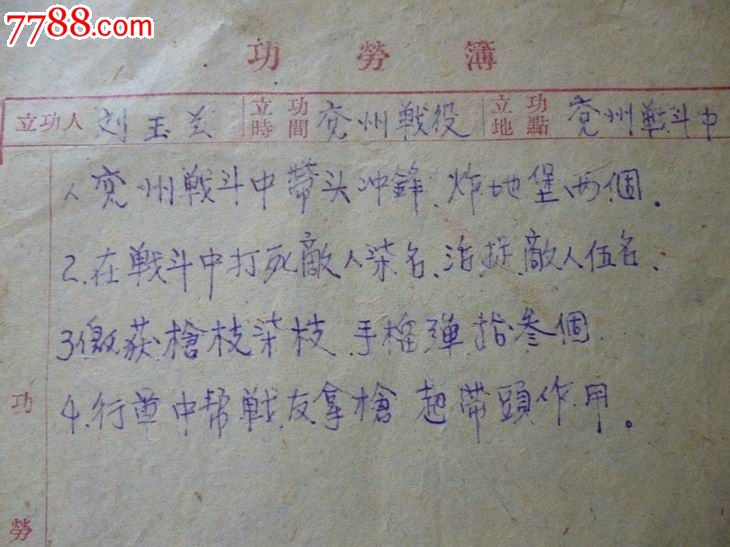 7788.com
功勞簿
立功人 刘玉兰 立功時間 兖州戦役 立功地點 兖州戦斗中
1. 兖州戦斗中帶头冲鋒、炸地堡两個。
2. 在戦斗中打死敵人柒名、活捉敵人伍名、
3 缴获槍枝柒枝 手榴弹拾叁個
4. 行軍中帮戦友拿槍 起帶頭作用。
功
勞